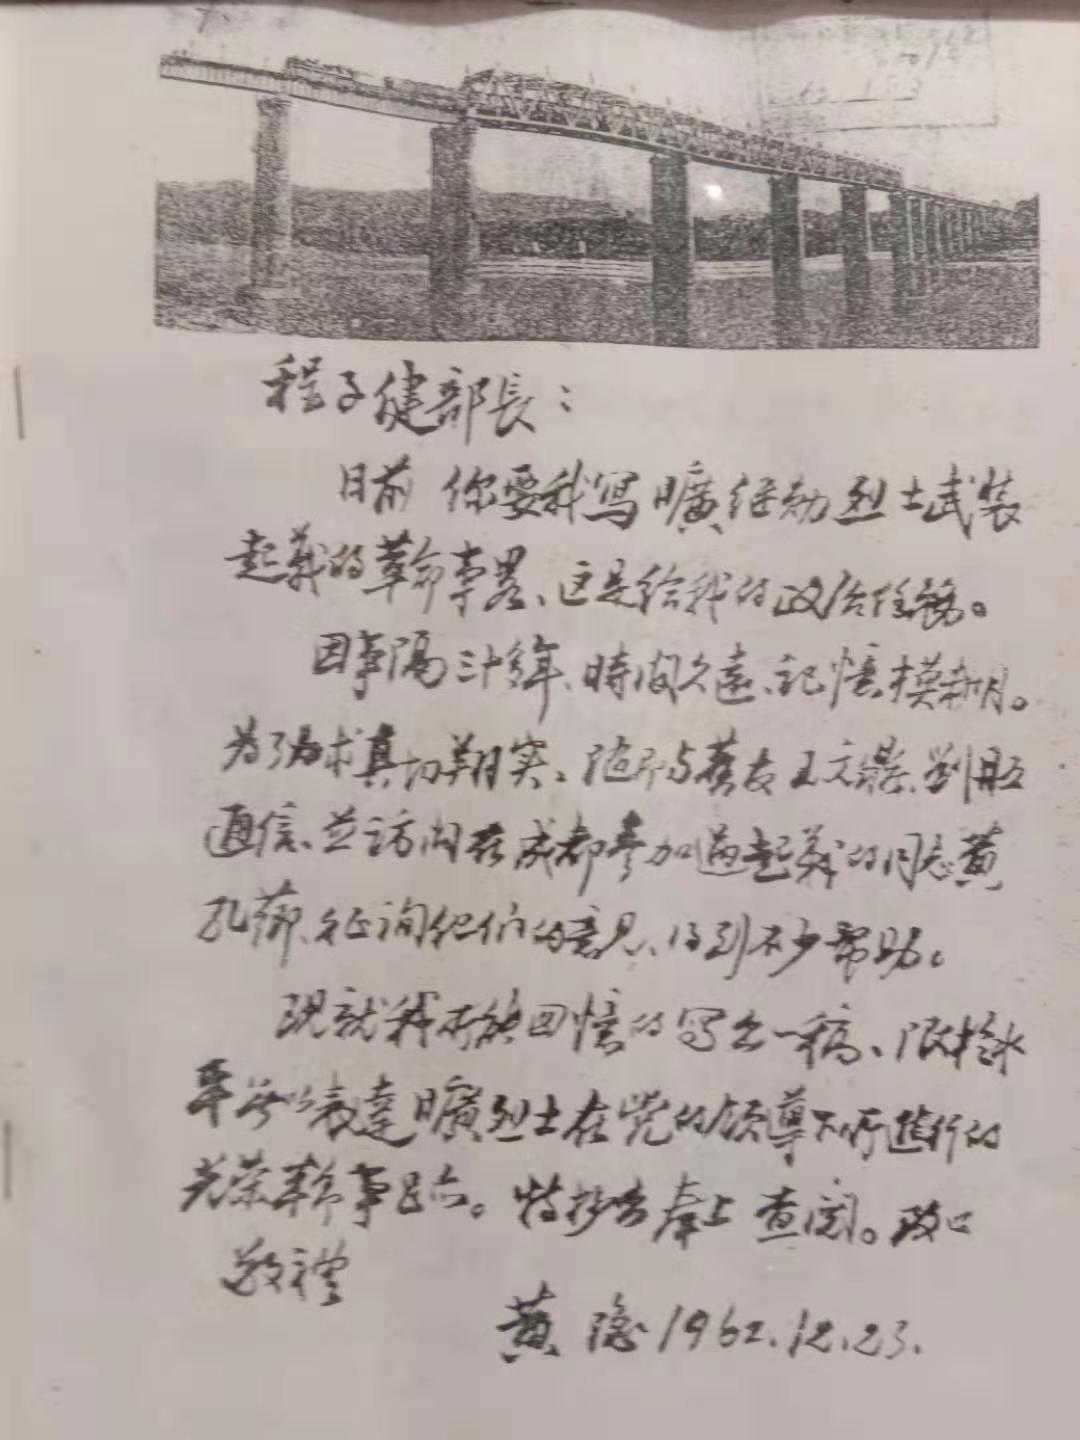 程子健部長：
日前 你要我写曠继勋烈士武装
起义的革命事畧、这是给我的政治任务。
因事隔三十多年、時间久遠、記憶模糊。
为了力求真切翔实、随即与蓉友王文鼎、刘
通信、並访问在成都参加过起義的同志黄
孔蒋、征询他们的意見、得到不少帮助。
现就我所能回憶的写出一稿、限於水
平、以表達曠烈士在党的领导下所進行的
光荣革命事迹。特抄出奉上 查阅。致以
敬禮
黄隐 1962.12.23.